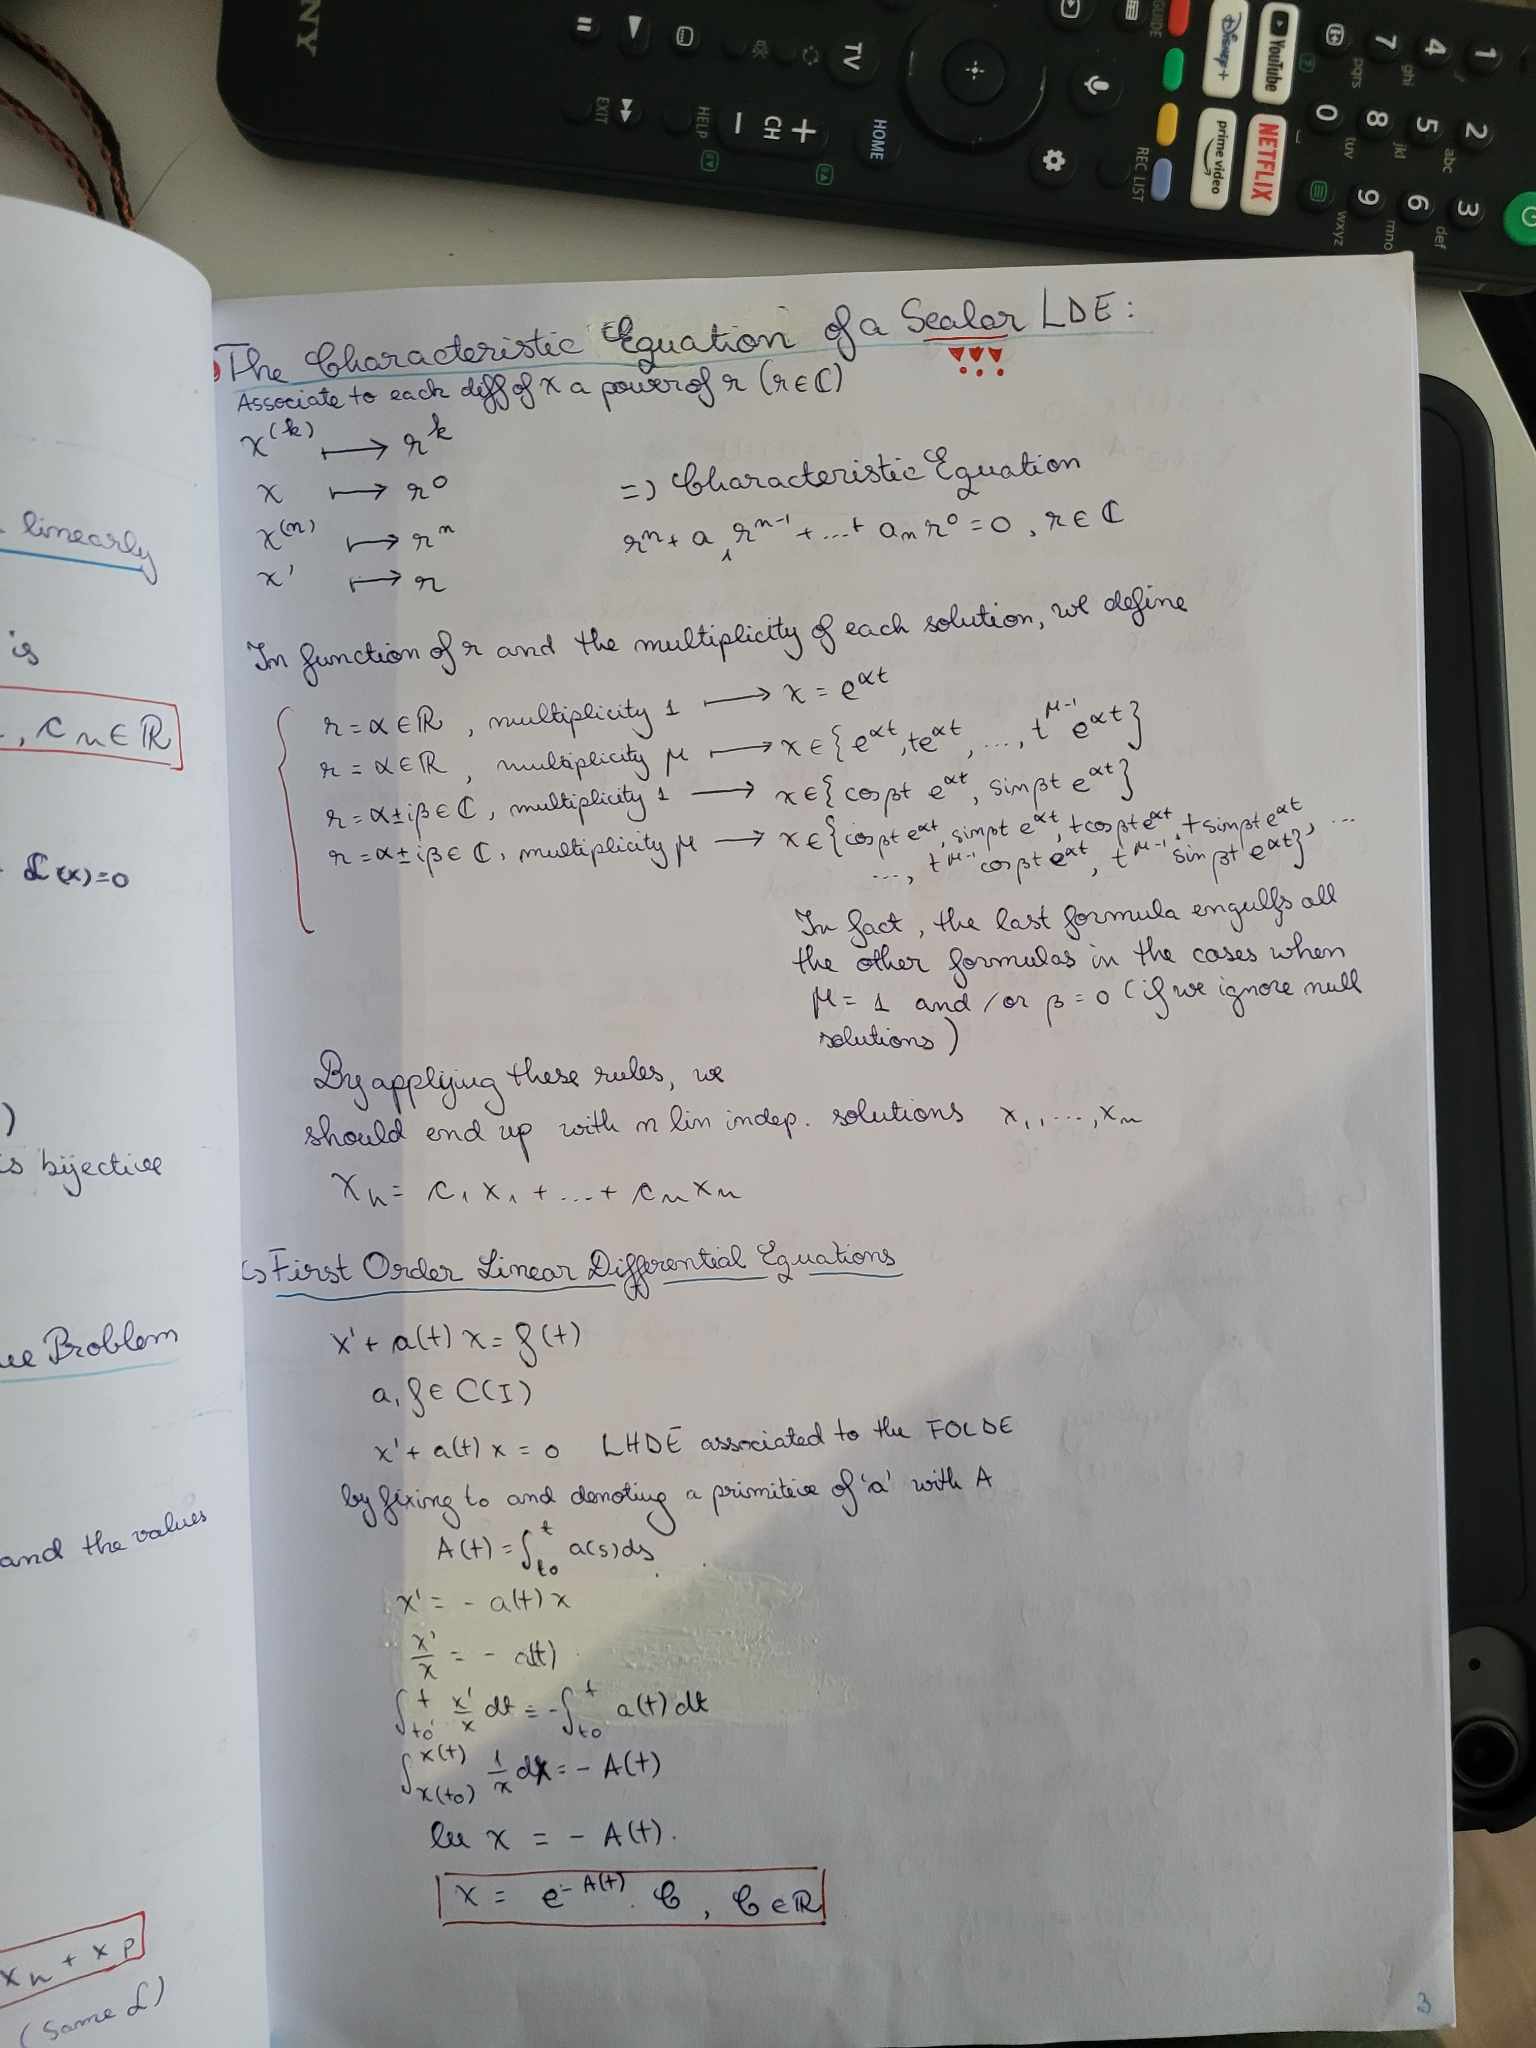 NY
TV
HOME
HELP
EXIT
CH
GUIDE
REC LIST
YouTube
Disney+
NETFLIX
prime video
1
2 abc
3 def
4 ghi
5 jkl
6 mno
7 pqrs
8 tuv
9 wxyz
0
linearly
is
, cₙ∈ℝ
ℒ(x)=0
)
is bijective
ue Problem
and the values
xₕ + xₚ
(same ℒ)
The Characteristic Equation of a Scalar LDE:
!!!
Associate to each diff of x a power of r (r∈ℂ)
x⁽ᵏ⁾ ⟼ rᵏ
x ⟼ r⁰
x⁽ⁿ⁾ ⟼ rⁿ
x' ⟼ r
=> Characteristic Equation
rⁿ + a₁rⁿ⁻¹ + ...+ aₙr⁰ = 0 , r∈ℂ
In function of r and the multiplicity of each solution, we define
r = α∈ℝ , multiplicity 1 ⟼ x = e^αt
r = α∈ℝ , multiplicity μ ⟼ x∈{e^αt, te^αt, ..., t^μ-1 e^αt}
r = α±iβ∈ℂ, multiplicity 1 ⟶ x∈{cosβt e^αt, sinβt e^αt}
r = α±iβ∈ℂ, multiplicity μ ⟶ x∈{cosβt e^αt, sinβt e^αt, tcosβt e^αt, tsinβt e^αt, ...
..., t^μ-1 cosβt e^αt, t^μ-1 sinβt e^αt}
In fact, the last formula engulfs all
the other formulas in the cases when
μ = 1 and/or β = 0 (if we ignore null
solutions)
By applying these rules, we
should end up with n lin indep. solutions x₁, ..., xₙ
xₕ = c₁x₁ + ...+ cₙxₙ
↳ First Order Linear Differential Equations
x' + a(t) x = f(t)
a, f∈C(I)
x' + a(t) x = 0 LHDE associated to the FOLDE
by fixing t₀ and denoting a primitive of 'a' with A
A(t) = ∫_t₀^t a(s)ds
x' = - a(t) x
x'/x = - a(t)
∫_t₀^t x'/x dt = -∫_t₀^t a(t) dt
∫_x(t₀)^x(t) 1/x dx = - A(t)
ln x = - A(t).
x = e^-A(t) · C , C∈ℝ
3